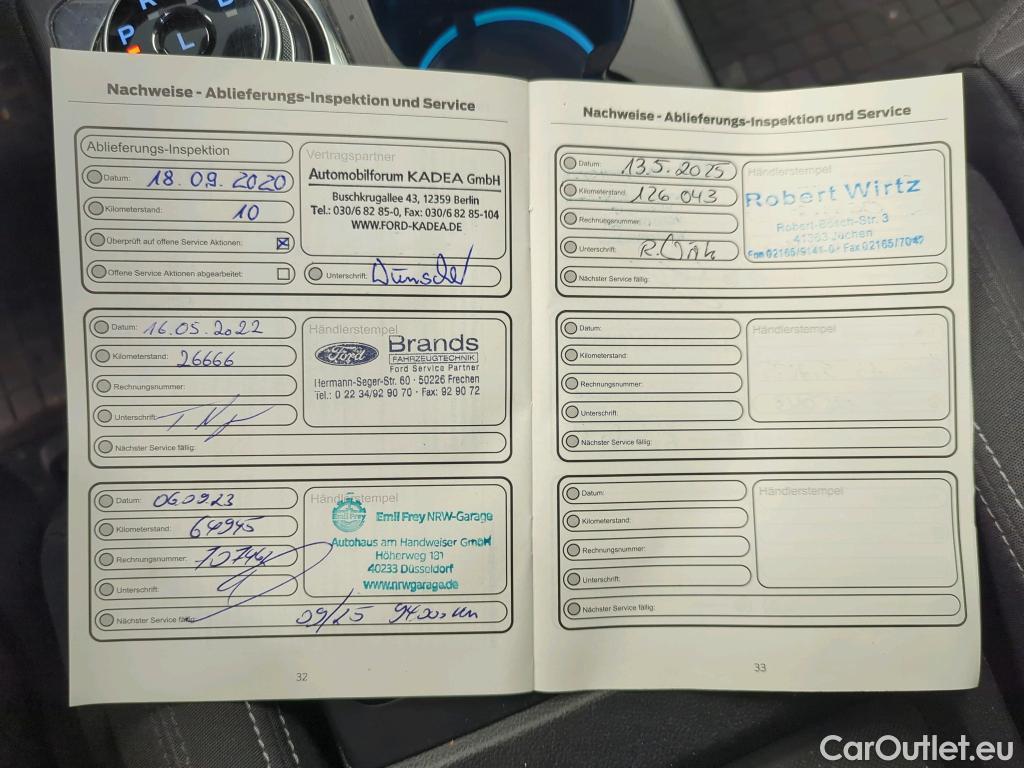 R
D
P
L
Nachweise - Ablieferungs-Inspektion und Service
Ablieferungs-Inspektion
Datum: 18.09.2020
Kilometerstand: 10
Überprüft auf offene Service Aktionen:
Offene Service Aktionen abgearbeitet:
Vertragspartner
Automobilforum KADEA GmbH
Buschkrugallee 43, 12359 Berlin
Tel.: 030/6 82 85-0, Fax: 030/6 82 85-104
WWW.FORD-KADEA.DE
Unterschrift:
Datum: 16.05.2022
Kilometerstand: 26666
Rechnungsnummer:
Unterschrift:
Nächster Service fällig:
Händlerstempel
Ford
Brands
FAHRZEUGTECHNIK
Ford Service Partner
Hermann-Seger-Str. 60 · 50226 Frechen
Tel.: 0 22 34/92 90 70 · Fax: 92 90 72
Datum: 06.09.23
Kilometerstand: 64945
Rechnungsnummer:
Unterschrift:
Nächster Service fällig: 09/25
Händlerstempel
Emil Frey
Emil Frey NRW-Garage
Autohaus am Handweiser GmbH
Höherweg 181
40233 Düsseldorf
www.nrwgarage.de
32
Nachweise - Ablieferungs-Inspektion und Service
Datum: 13.5.2025
Kilometerstand: 126 043
Rechnungsnummer:
Unterschrift:
Nächster Service fällig:
Händlerstempel
Robert Wirtz
Robert-Bosch-Str. 3
41363 Jüchen
Fon 02165/9141-0 · Fax 02165/7040
Datum:
Kilometerstand:
Rechnungsnummer:
Unterschrift:
Nächster Service fällig:
Händlerstempel
Datum:
Kilometerstand:
Rechnungsnummer:
Unterschrift:
Nächster Service fällig:
Händlerstempel
33
CarOutlet.eu